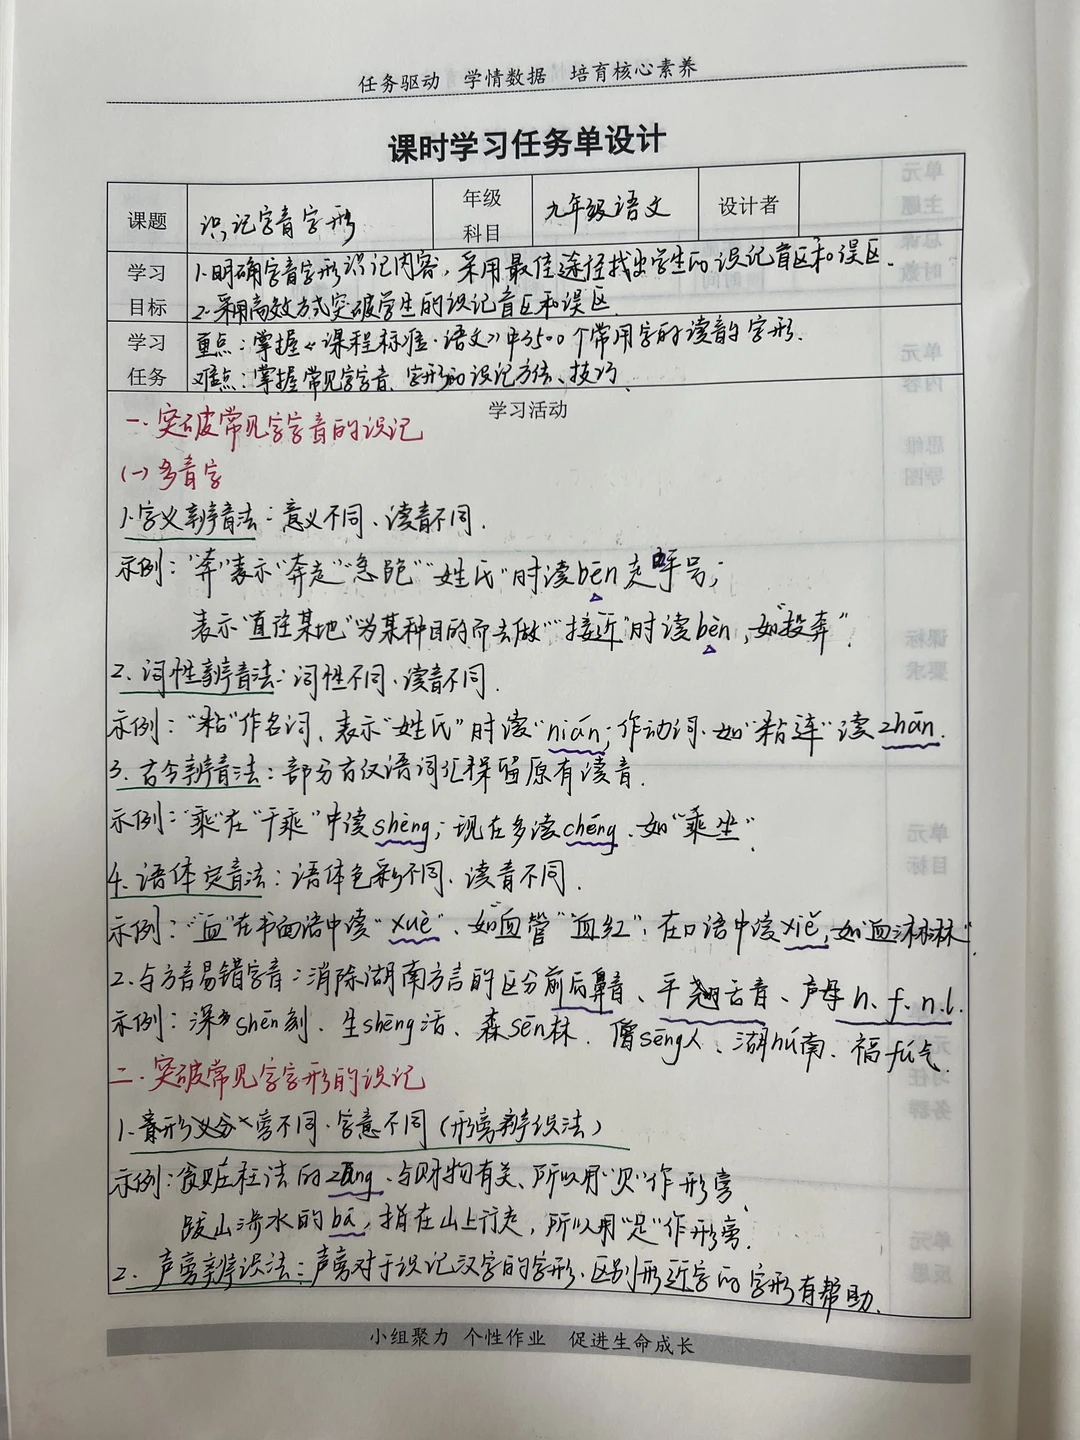 任务驱动 学情数据 培育核心素养
课时学习任务单设计
课题 识记字音字形 年级科目 九年级语文 设计者
学习目标 1.明确字音字形识记内容，采用最佳途径找出学生的识记盲区和误区.
2.采用高效方式突破学生的识记盲区和误区.
学习任务 重点：掌握《课程标准·语文》中3500个常用字的读音的字形.
难点：掌握常见字字音、字形的识记方法、技巧、
学习活动
一.突破常见字字音的识记
(一)多音字
1.字义辨音法：意义不同、读音不同.
示例："奔"表示"奔走""急跑""姓氏"时读bēn 走呼号；
表示"直往某地""为某种目的而去做""接近"时读bèn，如"投奔".
2.词性辨音法：词性不同、读音不同.
示例："粘"作名词、表示"姓氏"时读"nián；作动词.如"粘连"读zhān.
3.古今辨音法：部分古汉语词汇保留原有读音.
示例："乘"在"千乘"中读shèng；现在多读chéng、如"乘坐".
4.语体定音法：语体色彩不同、读音不同.
示例："血"在书面语中读"xuè"、如"血管""血红"；在口语中读xiě，如"血淋淋".
2.与方言易错字音：消除湖南方言的区分前后鼻音、平翘舌音、声母h、f、n、l.
示例：深shēn刻、生shēng活、森sēn林.僧sēng人、湖hú南、福fú气
二.突破常见字字形的识记
1.形旁不同.字意不同（形旁辨识法）
示例：贪赃枉法的zāng、与财物有关、所以用"贝"作形旁、
跋山涉水的bá，指在山上行走，所以用"足"作形旁.
2.声旁辨识法：声旁对于识记汉字的字形、区别形近字的字形有帮助.
小组聚力 个性作业 促进生命成长